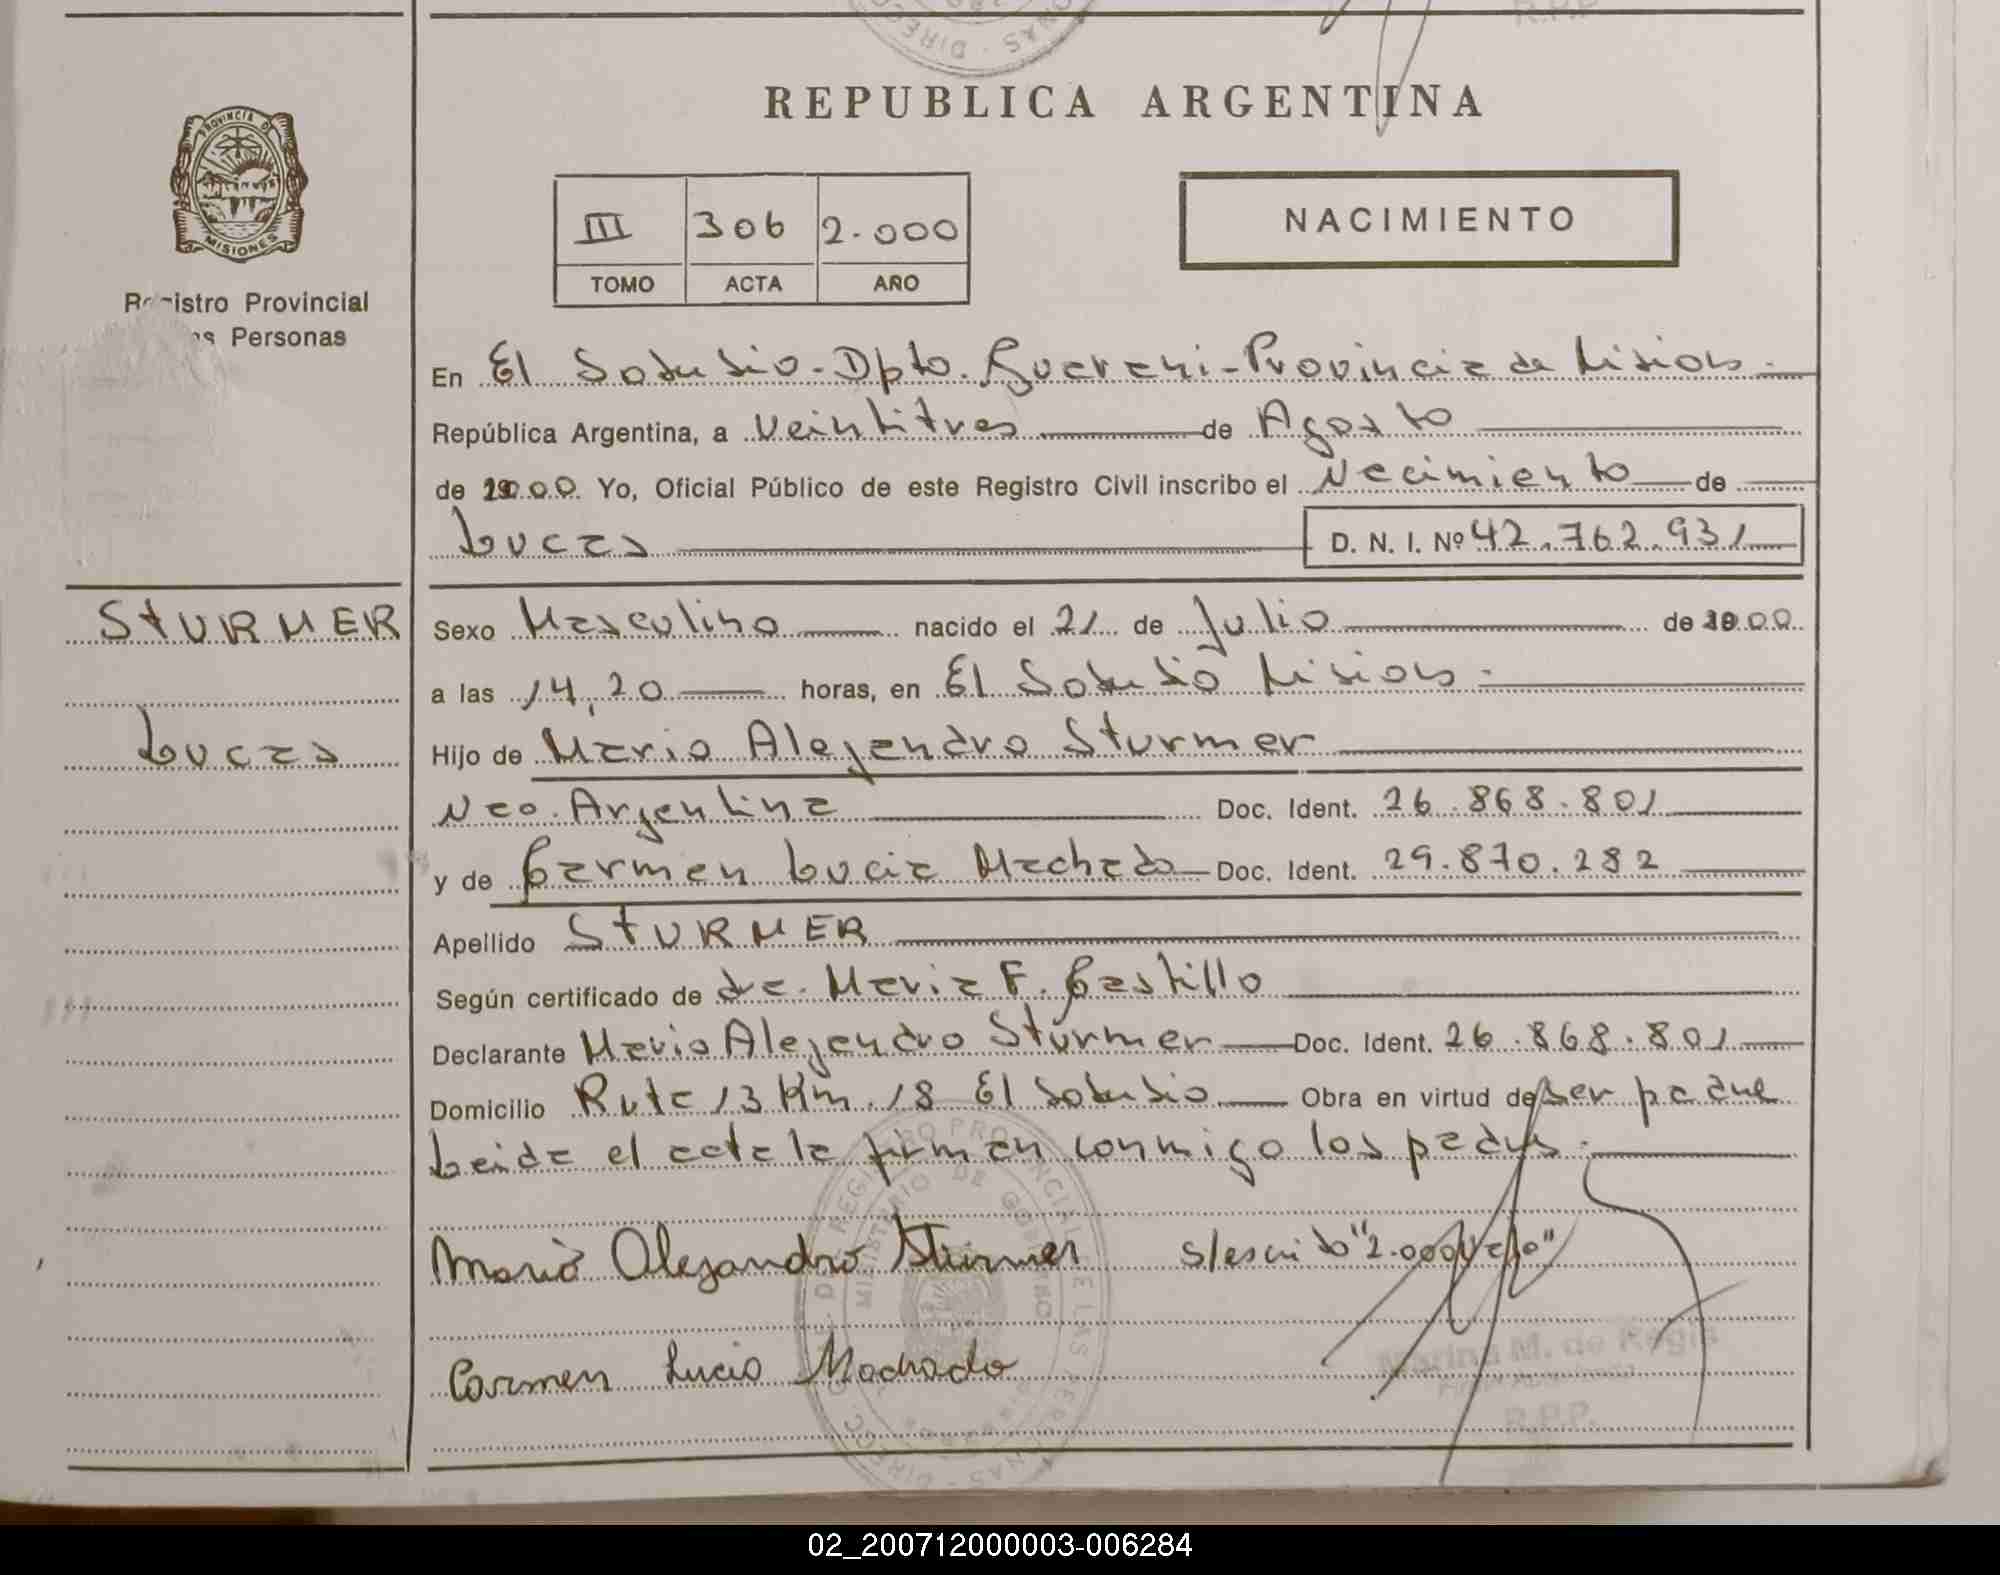 DIRECC
NAS
R.P.P.
REPUBLICA ARGENTINA
PROVINCIA DE
MISIONES
III 306 2.000
TOMO ACTA AÑO
NACIMIENTO
Registro Provincial
Personas
En El Soberbio - Dpto. Guarani - Provincia de Misiones.
República Argentina, a Veintitres de Agosto
de 2000 Yo, Oficial Público de este Registro Civil inscribo el Nacimiento de
Lucas D. N. I. Nº 42.762.931
STURMER
Sexo Masculino nacido el 21 de Julio de 2000
a las 14,20 horas, en El Soberbio Misiones.
Lucas
Hijo de Mario Alejandro Sturmer
Nac. Argentina Doc. Ident. 26.868.801
y de Carmen Lucia Machado Doc. Ident. 29.870.282
Apellido STURMER
Según certificado de dra. Maria F. Castillo
Declarante Mario Alejandro Sturmer Doc. Ident. 26.868.801
Domicilio Ruta 13 Km. 18 El Soberbio Obra en virtud de ser padre
Leida el acta la firman conmigo los padres.
Mario Alejandro Sturmer s/escrito "2.000
Carmen Lucia Machado
Marina M. de Regis
R.P.P.
02_200712000003-006284